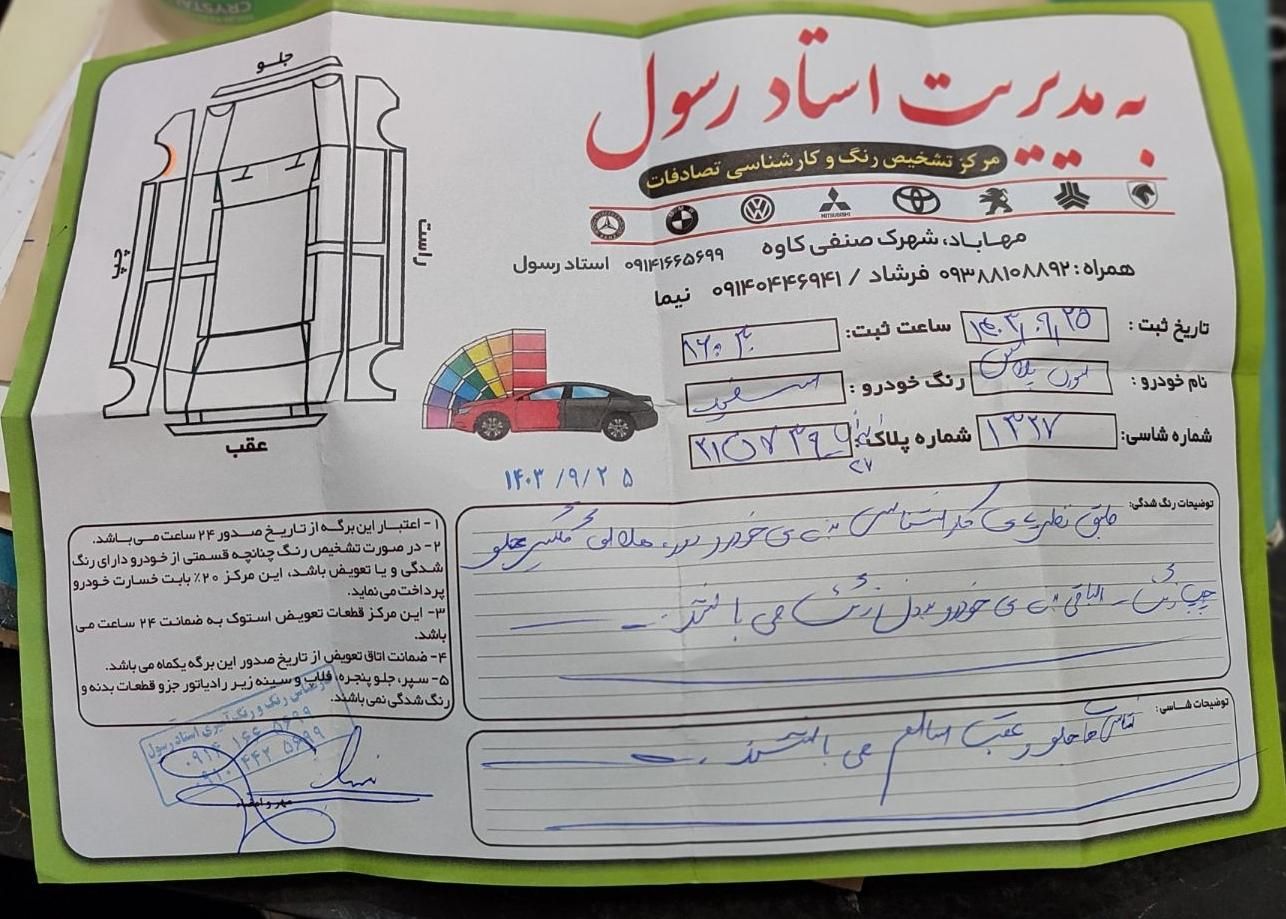 CRYSTAL
به مدیریت استاد رسول
مرکز تشخیص رنگ و کارشناسی تصادفات
MITSUBISHI
مهاباد، شهرک صنفی کاوه
۰۹۱۴۱۶۶۵۶۹۹ استاد رسول
همراه: ۰۹۳۸۸۱۰۸۸۹۲ فرشاد / ۰۹۱۴۰۴۴۶۹۴۱ نیما
تاریخ ثبت: ۱۴۰۳/۰۹/۲۵ ساعت ثبت:
نام خودرو: سورن پلاس رنگ خودرو: سفید
شماره شاسی: ۱۳۲۷ شماره پلاک: ۲۱ن۷۳۹ ایران ۲۷
جلو
چپ
راست
عقب
۱۴۰۳/۹/۲۵
توضیحات رنگ شدگی: طبق نظریه ی کارشناسی بدنه ی خودرو دور هلالی گلگیر جلو
چپ رنگ - الباقی بدنه ی خودرو بدون رنگ می باشد
توضیحات شاسی: شاسی ها جلو و عقب سالم می باشند
۱- اعتبار این برگه از تاریخ صدور ۲۴ ساعت می باشد.
۲- در صورت تشخیص رنگ چنانچه قسمتی از خودرو دارای رنگ
شدگی و یا تعویض باشد، این مرکز ۲۰٪ بابت خسارت خودرو
پرداخت می نماید.
۳- این مرکز قطعات تعویض استوک به ضمانت ۲۴ ساعت می
باشد.
۴- ضمانت اتاق تعویض از تاریخ صدور این برگه یکماه می باشد.
۵- سپر، جلو پنجره، قلاب و سینه زیر رادیاتور جزو قطعات بدنه و
رنگ شدگی نمی باشند.
کارشناس رنگ و رنگ آمیزی استاد رسول
۰۹۱۴ ۱۶۶ ۵۶۹۹
۰۹۱۰ ۴۴۲ ۵۶۹۹
مهر و امضاء